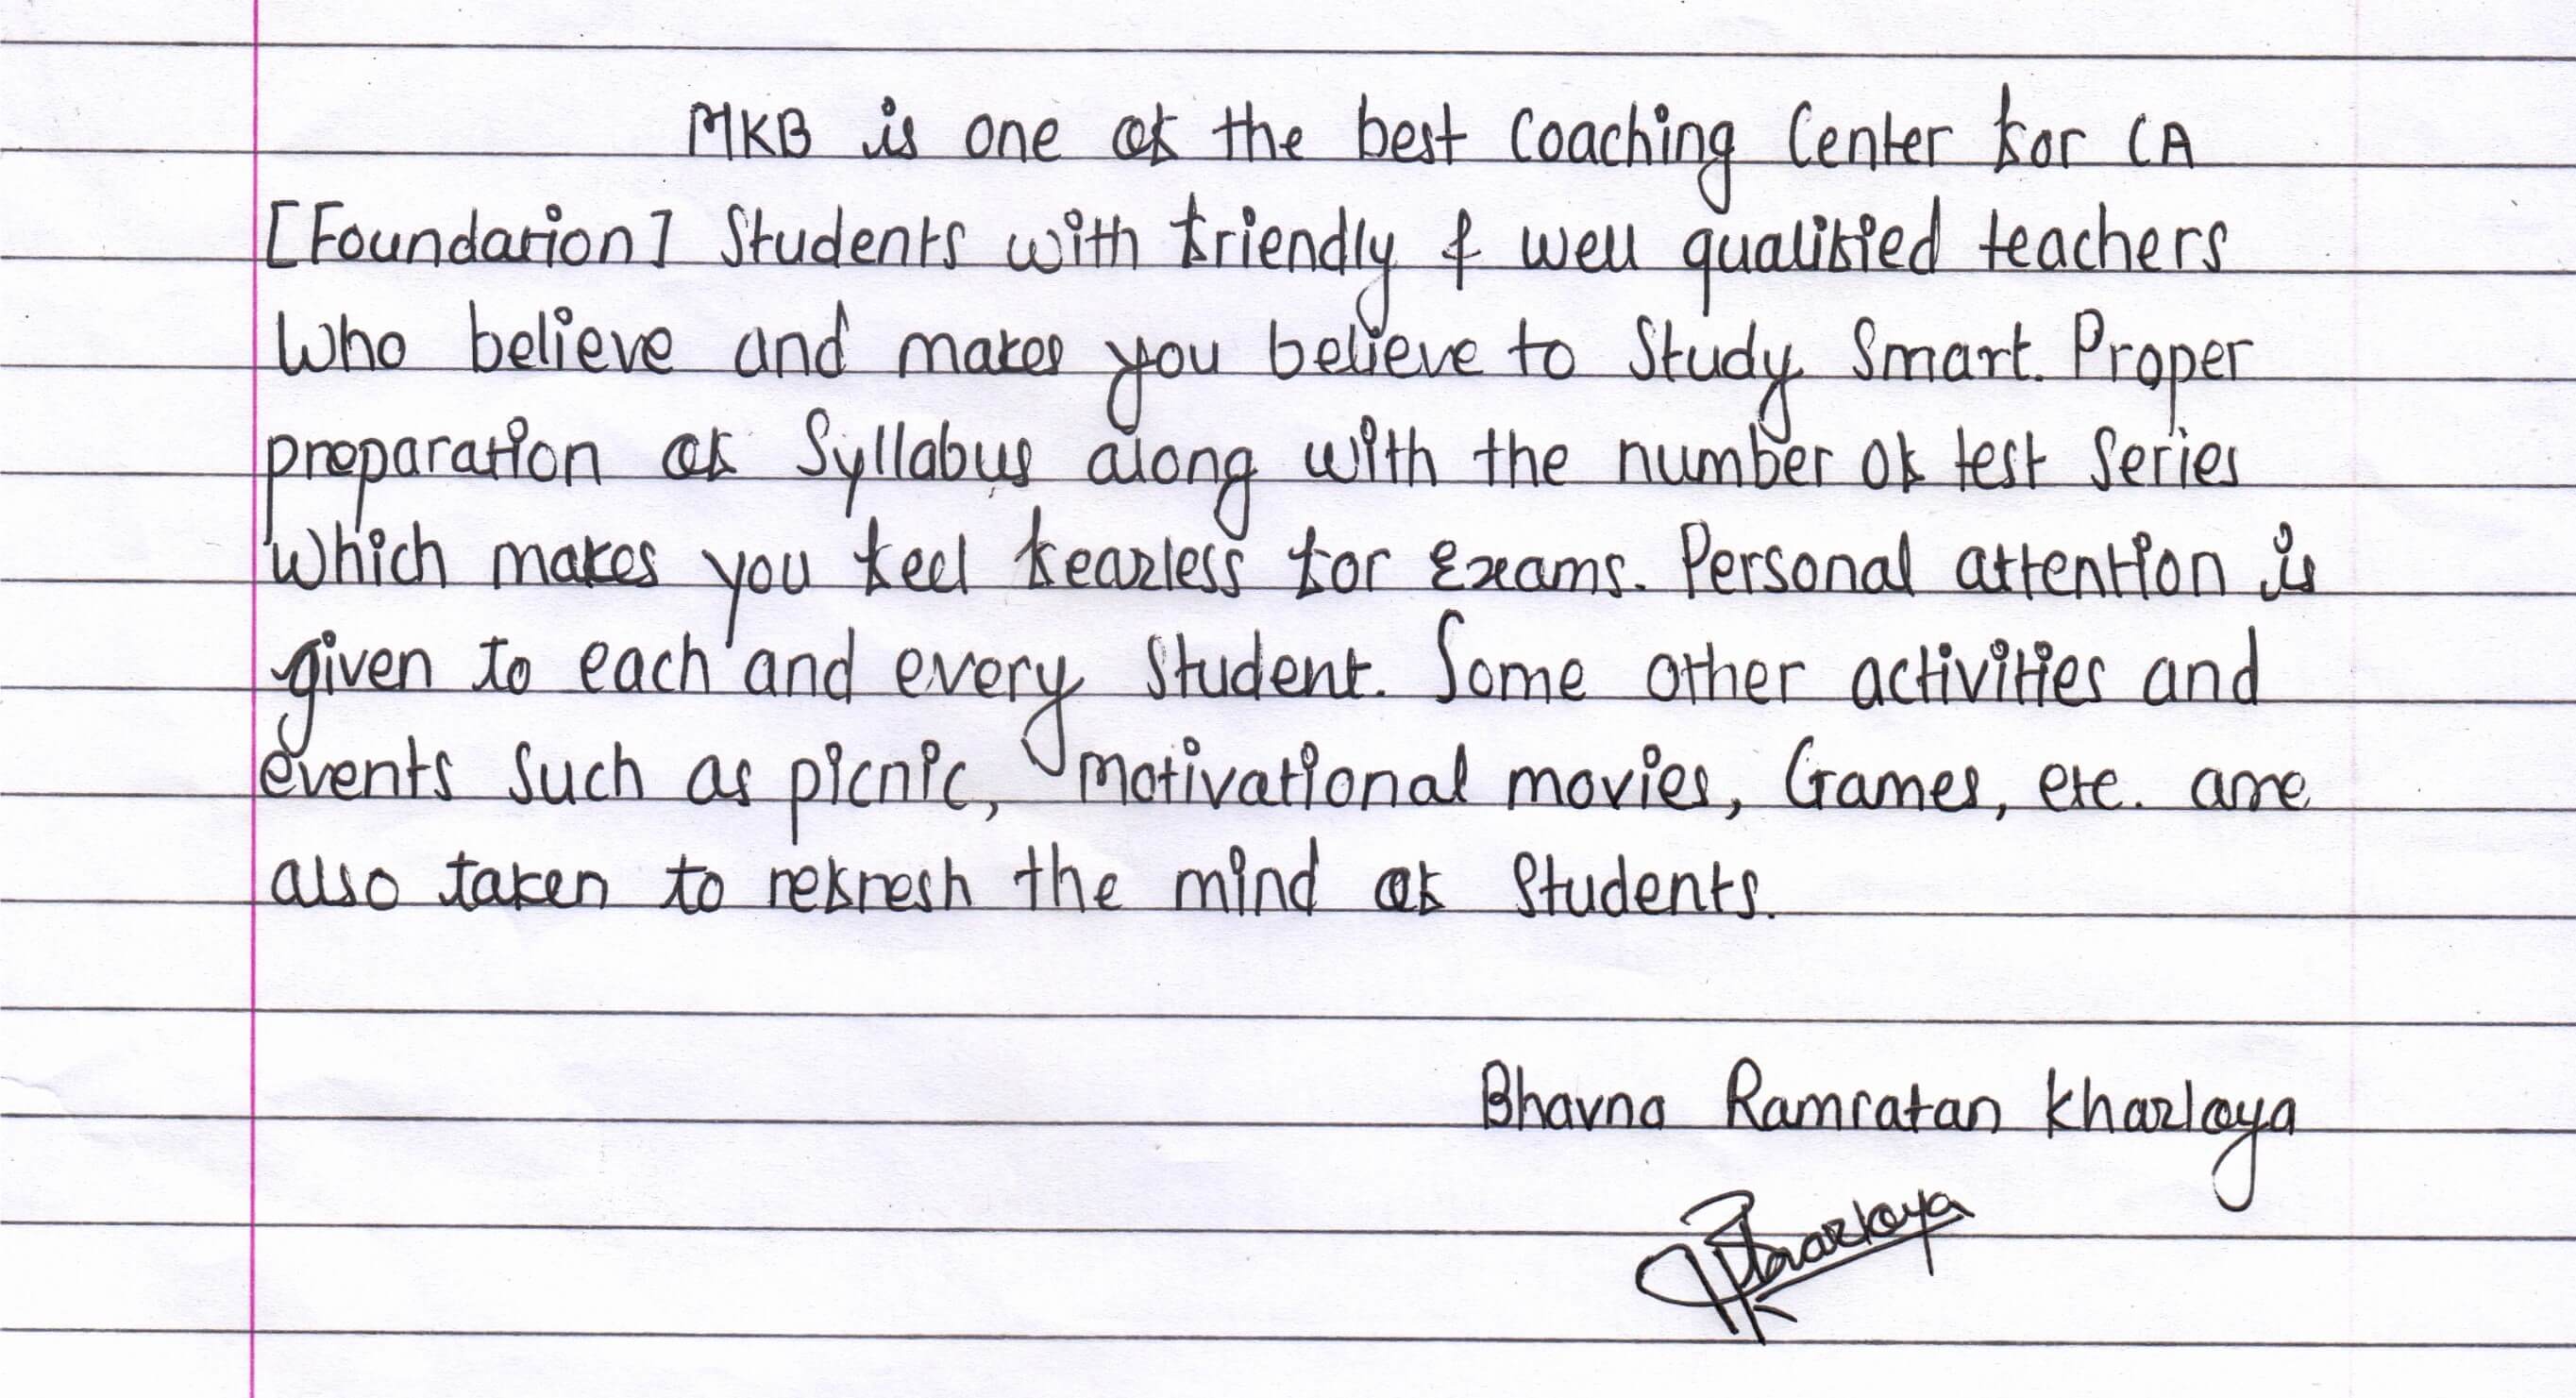 MKB is one of the best Coaching Center for CA
[Foundation] Students with friendly & well qualified teachers
Who believe and makes you believe to Study Smart. Proper
preparation of Syllabus along with the number of test Series
Which makes you feel fearless for Exams. Personal attention is
given to each and every Student. Some other activities and
events Such as picnic, motivational movies, Games, etc. are
also taken to refresh the mind of Students.
Bhavna Ramratan Kharloya